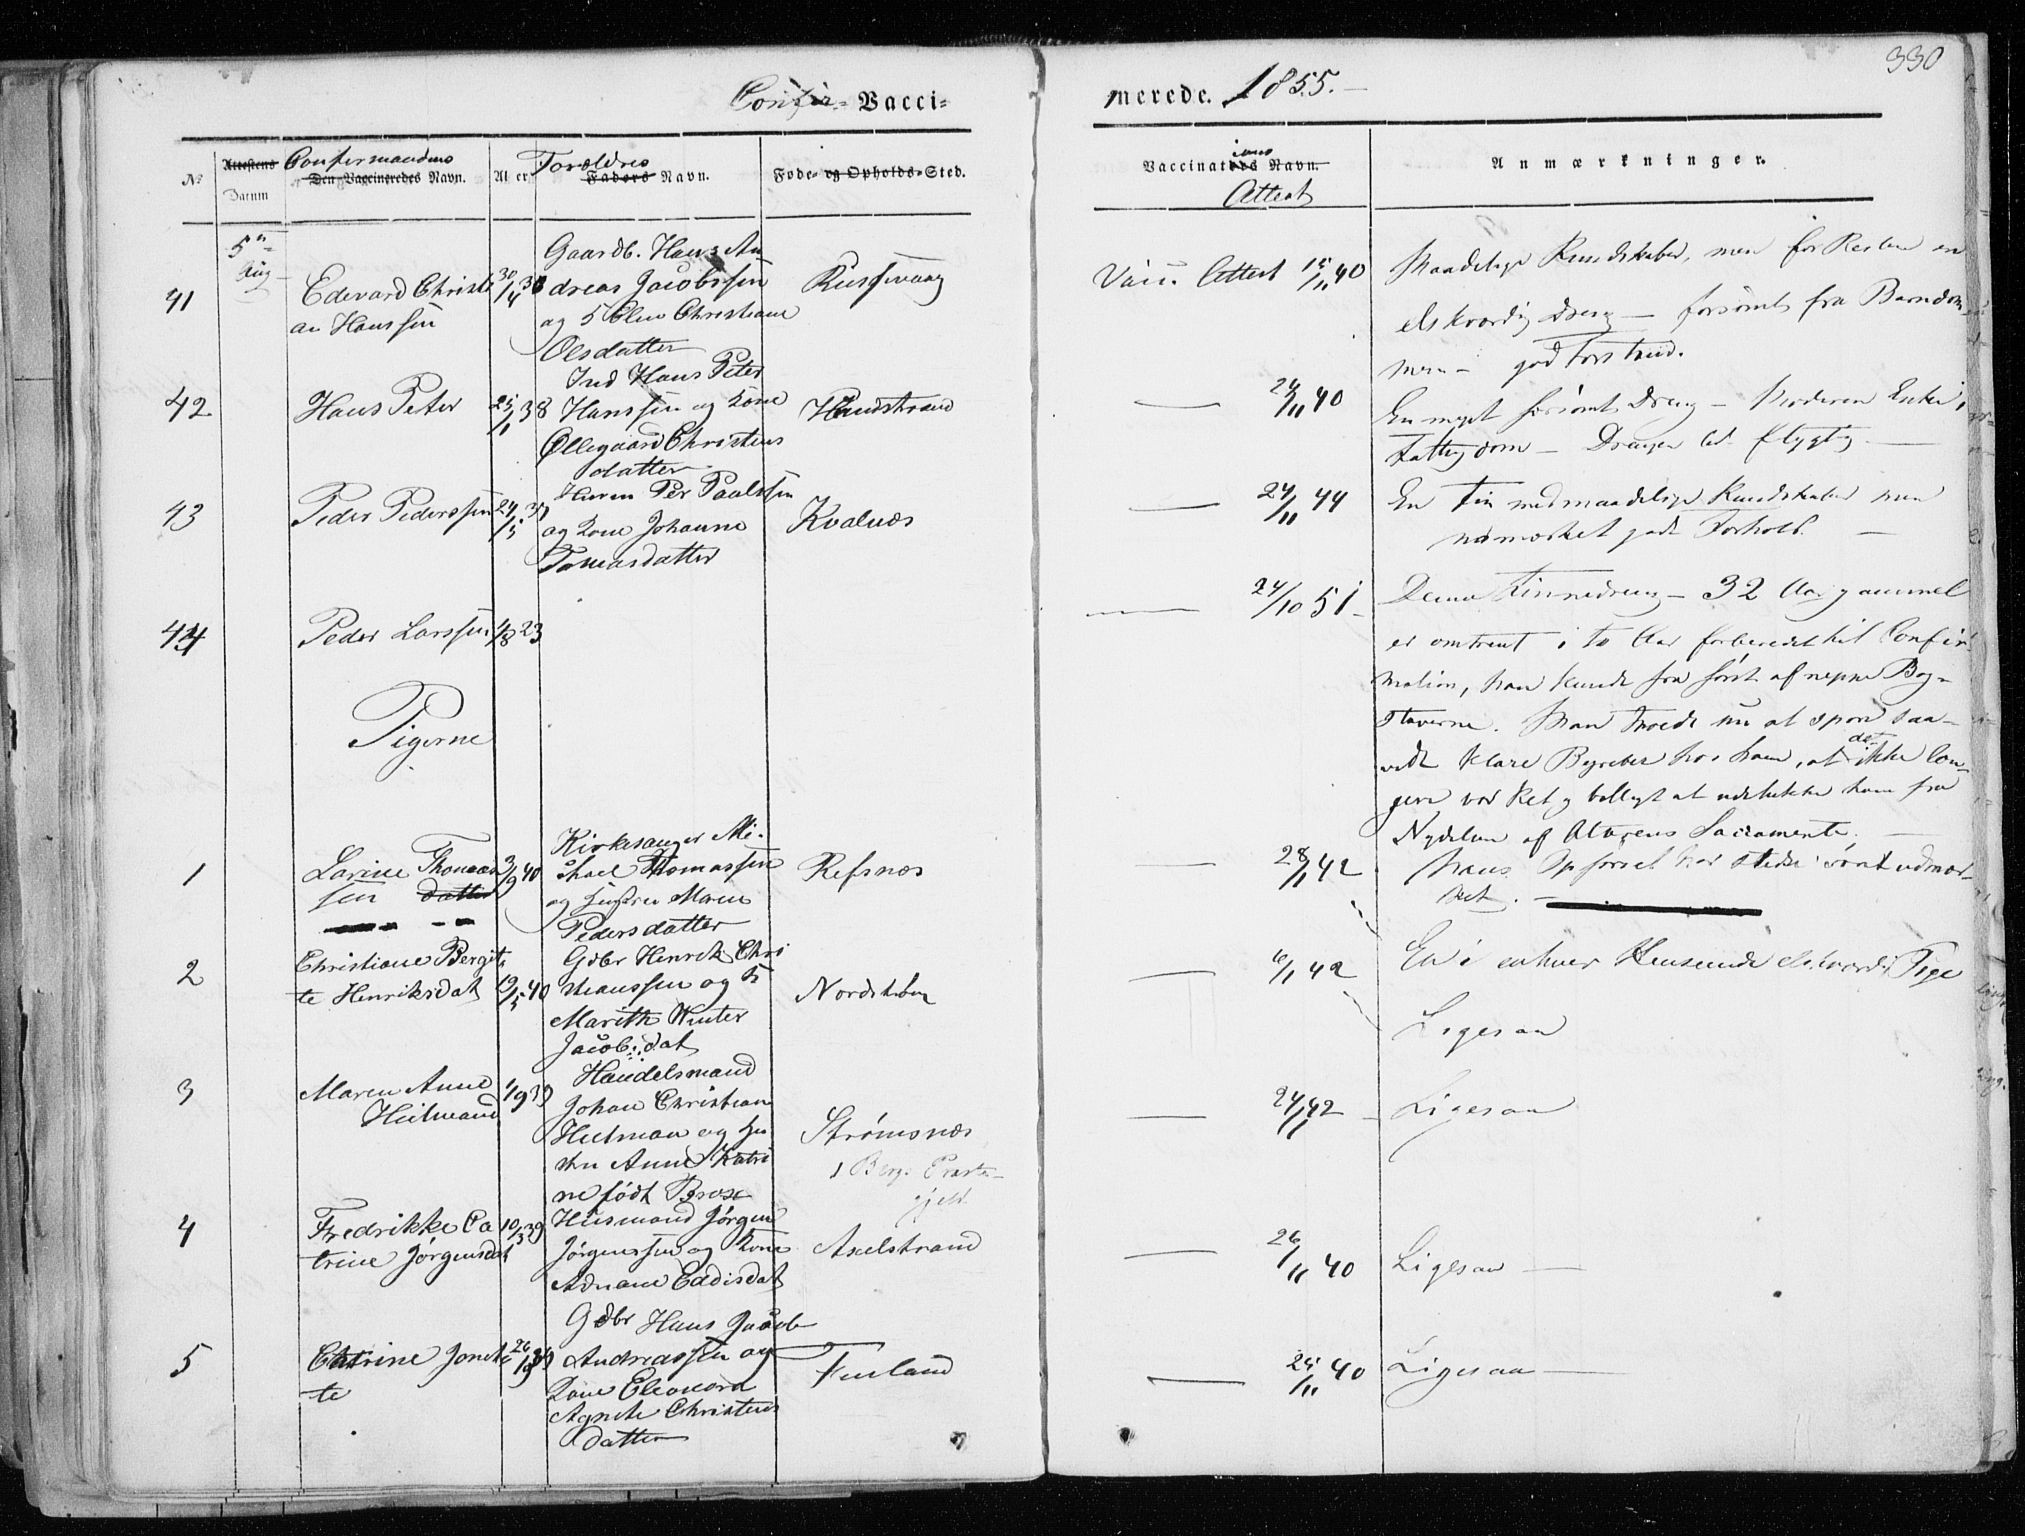 330
Confir= Vacci=
merede. 1855.
No
Attestens Datum
Confirmandens
Den Vaccineredes Navn.
Alder
Forældres
Faders Navn.
Føde- og Opholds-Sted.
Vaccinations Navn.
Attest
Anmærkninger.
5te
Aug
41
Edevard Christi
an Hanssen
30/4 38
Gaardb. Hans An
dreas Jacobssen
og Christiane
Olsdatter
Vacc. Attest 15/11 40
Maadelige Kundskaber, men for Resten en
elskværdig Dreng — forsømt fra Barndom
men — god Forstand.
42
Hans Peter
25/1 38
Ind Hans Peter
Hanssen og Kone
Øllegaard Christens
datter
— 24/11 40
En meget forsømt Dreng — Moderen Enke i
Fattigdom — Drengen lidt flygtig —
43
Peder Pederssen
24/5 37
Per Paulssen
og Kone Johanne
Tomasdatter
Kvalnæs
— 24/11 44
En Fin med maadelige Kundskaber men
udmærket godt Forhold. —
44
Peder Larssen
1/8 23
— 24/10 51
Denne Finnedreng — 32 Aar gammel
er omtrent i to Aar forberedet til Confir
mation, han kunde fra først af neppe Bog-
staverne. Man troede nu at spore saa-
vidt klare Begreber hos ham, at det ikke læn-
gere var Ret og billigt at udelukke ham fra
Nydelsen af Alterens Sacramente. —
Hans Opførsel har stedse været udmær-
ket. —
Pigerne
1
Larine Thomas
sen datter
3/9 40
Kirkesanger Mi-
chael Thomassen
og Hustru Maren
Pedersdatter
Refsnæs
— 28/11 42
En i enhver Henseende elskværdig Pige
2
Christiane Bergit
te Henriksdat
19/5 40
Gdbr Henrik Chri
stianssen og K
Marith Winter
Jacobsdat
— 6/1 42
Ligesaa
3
Maren Anne
Heitmand
1/9 39
Handelsmand
Johan Christian
Heitman og Hu
stru Anne Katri
ne født
Strømsnæs
i Bergs Præste-
gjeld
— 24/11 42
Ligesaa
4
Fredrikke Ca
trine Jørgensdat
10/3 39
Husmand Jørgen
Jørgenssen og Kone
Adriane Eddisdat
Axelstrand
— 26/11 40
Ligesaa —
5
Catrine Jonet
te
26/19
Gdbr Hans Jacob
Andreassen og
Kone Eleonora
Agnete Christens
datter
Finland
— 25/11 40
Ligesaa —